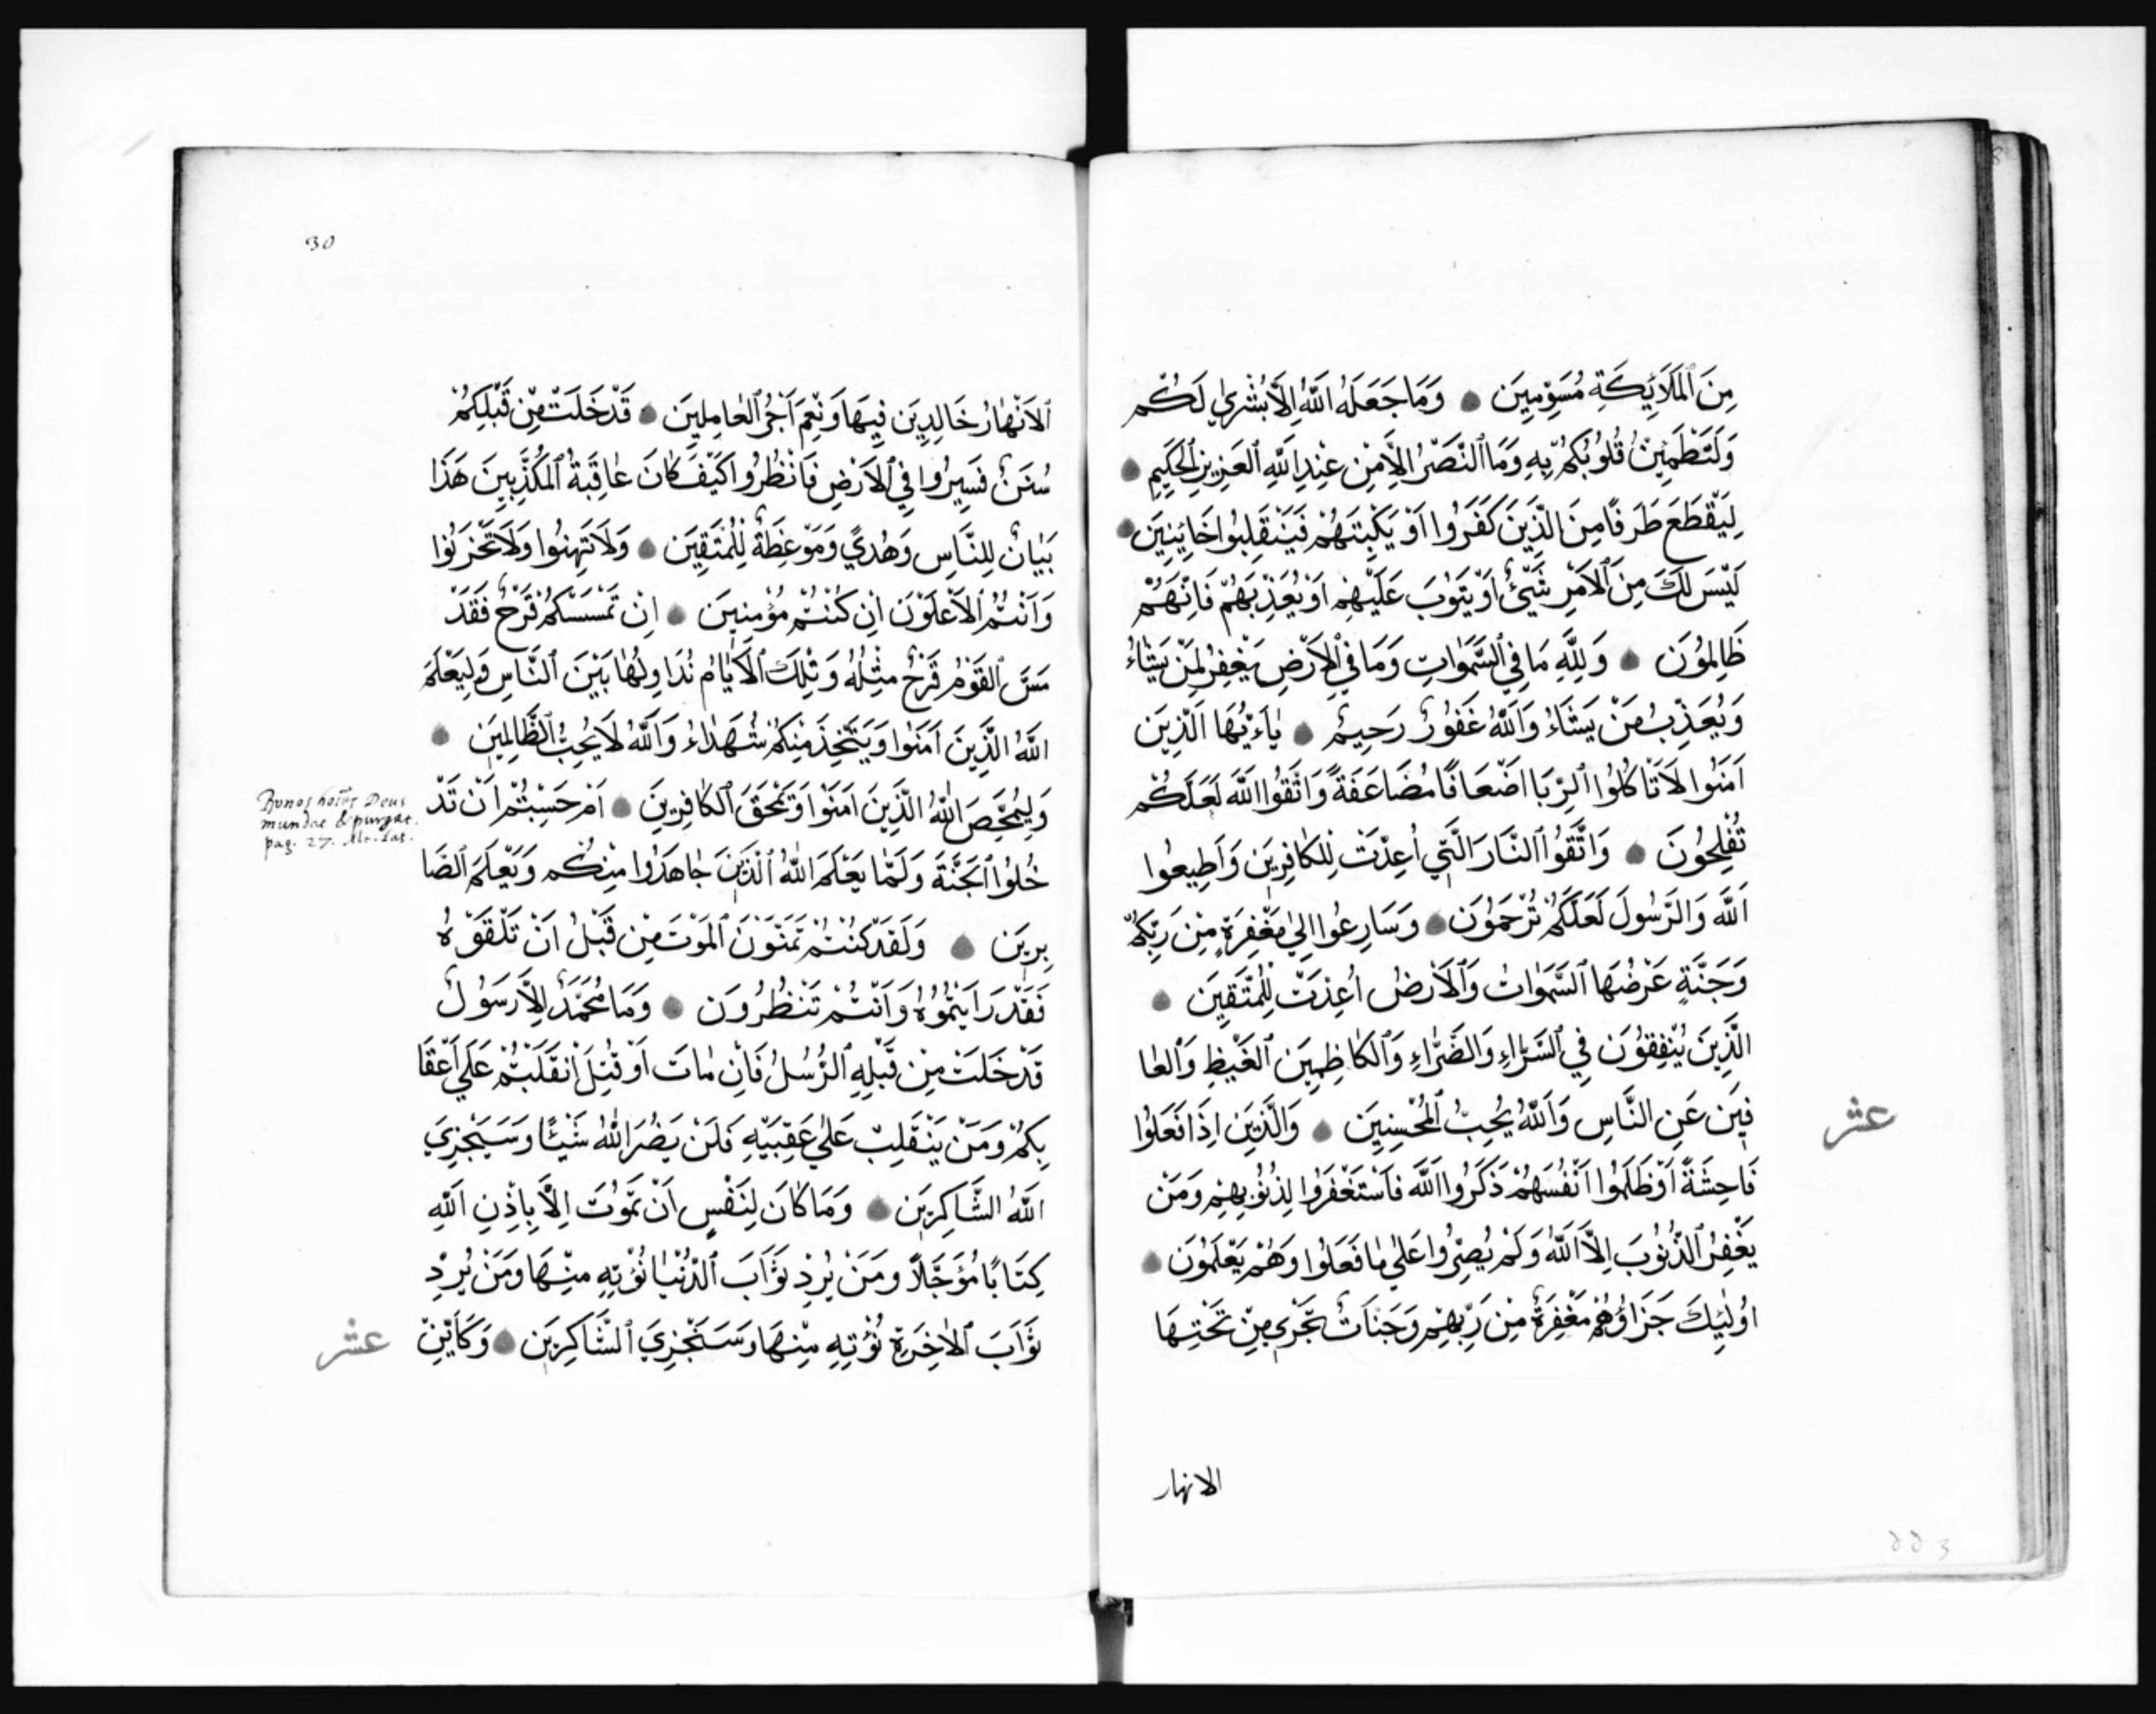 مِنَ ٱلْمَلَائِكَةِ مُسَوِّمِينَ ۝ وَمَا جَعَلَهُ اللَّهُ اِلَّا بُشْرٰي لَكُمْ
وَلِتَطْمَئِنَّ قُلُوبُكُمْ بِهِ وَمَا ٱلنَّصْرُ اِلَّا مِنْ عِنْدِ اللَّهِ ٱلعَزِيزِ ٱلحَكِيمِ ۝
لِيَقْطَعَ طَرَفًا مِنَ الَّذِينَ كَفَرُوا اَوْ يَكْبِتَهُمْ فَيَنْقَلِبُوا خَايِبِينَ ۝
لَيْسَ لَكَ مِنَ ٱلاَمْرِ شَيْئٌ اَوْ يَتُوبَ عَلَيْهِمْ اَوْ يُعَذِّبَهُمْ فَاِنَّهُمْ
ظَالِمُونَ ۝ وَلِلَّهِ مَا فِي ٱلسَّمٰوَاتِ وَمَا فِي ٱلاَرْضِ يَغْفِرُ لِمَنْ يَشَاءُ
وَيُعَذِّبُ مَنْ يَشَاءُ وَاللَّهُ غَفُورٌ رَحِيمٌ ۝ يَاءَيُّهَا الَّذِينَ
اَمَنُوا لَا تَاكُلُوا ٱلرِّبَا اَضْعَافًا مُضَاعَفَةً وَاتَّقُوا اللَّهَ لَعَلَّكُمْ
تُفْلِحُونَ ۝ وَاتَّقُوا ٱلنَّارَ الَّتِي اُعِدَّتْ لِلكَافِرِينَ وَاَطِيعُوا
اللَّهَ وَالرَّسُولَ لَعَلَّكُمْ تُرْحَمُونَ ۝ وَسَارِعُوا اِلٰي مَغْفِرَةٍ مِنْ رَبِّكُمْ
وَجَنَّةٍ عَرْضُهَا ٱلسَّمٰوَاتُ وَٱلاَرْضُ اُعِدَّتْ لِلْمُتَّقِينَ ۝
الَّذِينَ يُنْفِقُونَ فِي ٱلسَّرَّاءِ وَالضَّرَّاءِ وَٱلكَاظِمِينَ ٱلغَيْظَ وَٱلعَا
فِينَ عَنِ النَّاسِ وَاللَّهُ يُحِبُّ ٱلمُحْسِنِينَ ۝ وَالَّذِينَ اِذَا فَعَلُوا
عشر
فَاحِشَةً اَوْ ظَلَمُوا اَنْفُسَهُمْ ذَكَرُوا اللَّهَ فَاسْتَغْفَرُوا لِذُنُوبِهِمْ وَمَنْ
يَغْفِرُ ٱلذُّنُوبَ اِلَّا اللَّهُ وَلَمْ يُصِرُّوا عَلٰي مَا فَعَلُوا وَهُمْ يَعْلَمُونَ ۝
اُولٰئِكَ جَزَاؤُهُمْ مَغْفِرَةٌ مِنْ رَبِّهِمْ وَجَنَّاتٌ تَجْرِي مِنْ تَحْتِهَا
الانهار
30
ٱلاَنْهَارُ خَالِدِينَ فِيهَا وَنِعْمَ اَجْرُ ٱلعَامِلِينَ ۝ قَدْ خَلَتْ مِنْ قَبْلِكُمْ
سُنَنٌ فَسِيرُوا فِي ٱلاَرْضِ فَانْظُرُوا كَيْفَ كَانَ عَاقِبَةُ ٱلمُكَذِّبِينَ هَذَا
بَيَانٌ لِلنَّاسِ وَهُدًي وَمَوْعِظَةٌ لِلْمُتَّقِينَ ۝ وَلَا تَهِنُوا وَلَا تَحْزَنُوا
وَاَنْتُمْ ٱلاَعْلَوْنَ اِنْ كُنْتُمْ مُؤْمِنِينَ ۝ اِنْ تَمْسَسْكُمْ قَرْحٌ فَقَدْ
مَسَّ ٱلقَوْمَ قَرْحٌ مِثْلُهُ وَتِلْكَ ٱلاَيَّامُ نُدَاوِلُهَا بَيْنَ ٱلنَّاسِ وَلِيَعْلَمَ
اللَّهُ الَّذِينَ اَمَنُوا وَيَتَّخِذَ مِنْكُمْ شُهَدَاءَ وَاللَّهُ لَا يُحِبُّ ٱلظَّالِمِينَ ۝
وَلِيُمَحِّصَ اللَّهُ الَّذِينَ اَمَنُوا وَيَمْحَقَ ٱلكَافِرِينَ ۝ اَمْ حَسِبْتُمْ اَنْ تَدْ
Bonos hoīes Deus
mundat & purgat.
pag. 27. Alc. Lat.
خُلُوا ٱلجَنَّةَ وَلَمَّا يَعْلَمَ اللَّهُ ٱلَّذِينَ جَاهَدُوا مِنْكُمْ وَيَعْلَمَ ٱلصَّا
بِرِينَ ۝ وَلَقَدْ كُنْتُمْ تَمَنَّوْنَ ٱلمَوْتَ مِنْ قَبْلُ اَنْ تَلْقَوْهُ
فَقَدْ رَاَيْتُمُوهُ وَاَنْتُمْ تَنْظُرُونَ ۝ وَمَا مُحَمَّدٌ اِلَّا رَسُولٌ
قَدْ خَلَتْ مِنْ قَبْلِهِ ٱلرُّسُلُ فَاِنْ مَاتَ اَوْ قُتِلَ ٱنْقَلَبْتُمْ عَلَي اَعْقَا
بِكُمْ وَمَنْ يَنْقَلِبْ عَلٰي عَقِبَيْهِ فَلَنْ يَضُرَّ اللَّهَ شَيْئًا وَسَيَجْزِيَ
اللَّهُ الشَّاكِرِينَ ۝ وَمَا كَانَ لِنَفْسٍ اَنْ تَمُوتَ اِلَّا بِاِذْنِ اللَّهِ
كِتَابًا مُؤَجَّلًا وَمَنْ يُرِدْ ثَوَابَ ٱلدُّنْيَا نُؤْتِهِ مِنْهَا وَمَنْ يُرِدْ
ثَوَابَ ٱلاٰخِرَةِ نُؤْتِهِ مِنْهَا وَسَنَجْزِيَ ٱلشَّاكِرِينَ ۝ وَكَاَيِّنْ
عشر